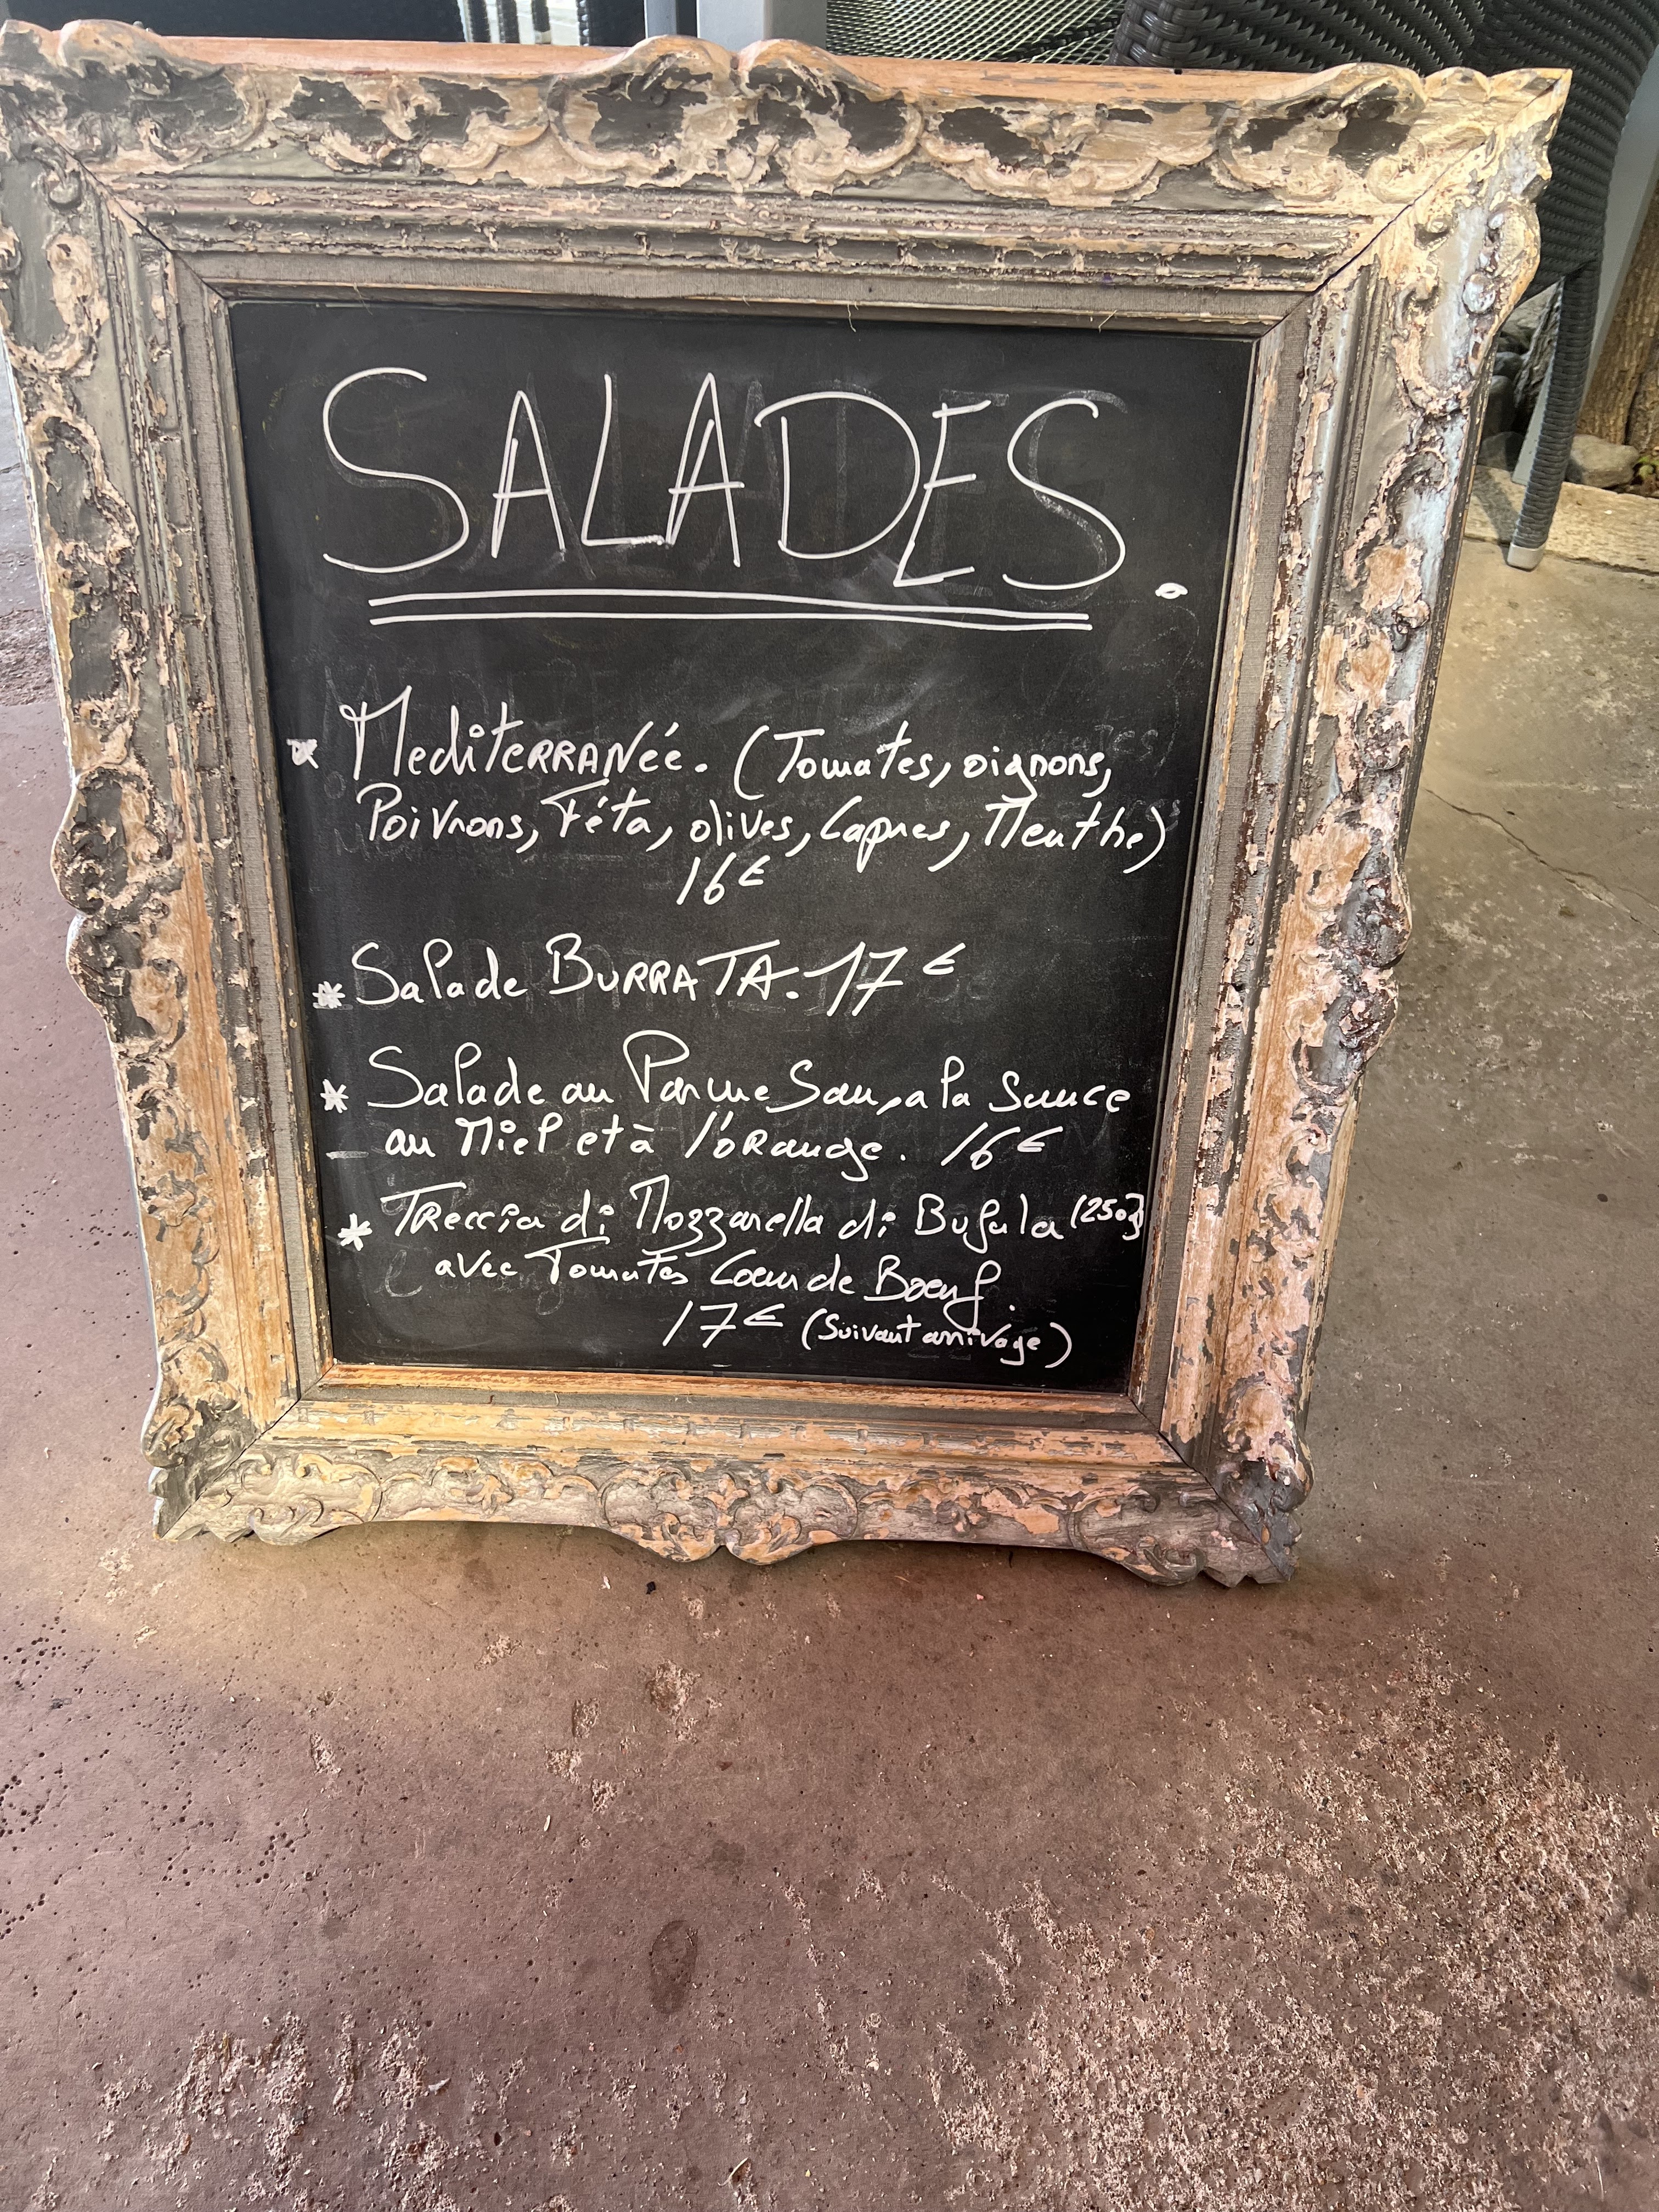 SALADES.
* Mediterranée. (Tomates, oignons,
Poivrons, Féta, olives, Capres, Menthe)
16€
* Salade BURRATA. 17€
* Salade au Parmesan, a la Sauce
au Miel et à l'orange. 16€
* Treccia di Mozzarella di Bufala (250g)
avec Tomates Coeur de Boeuf.
17€ (Suivant arrivage)